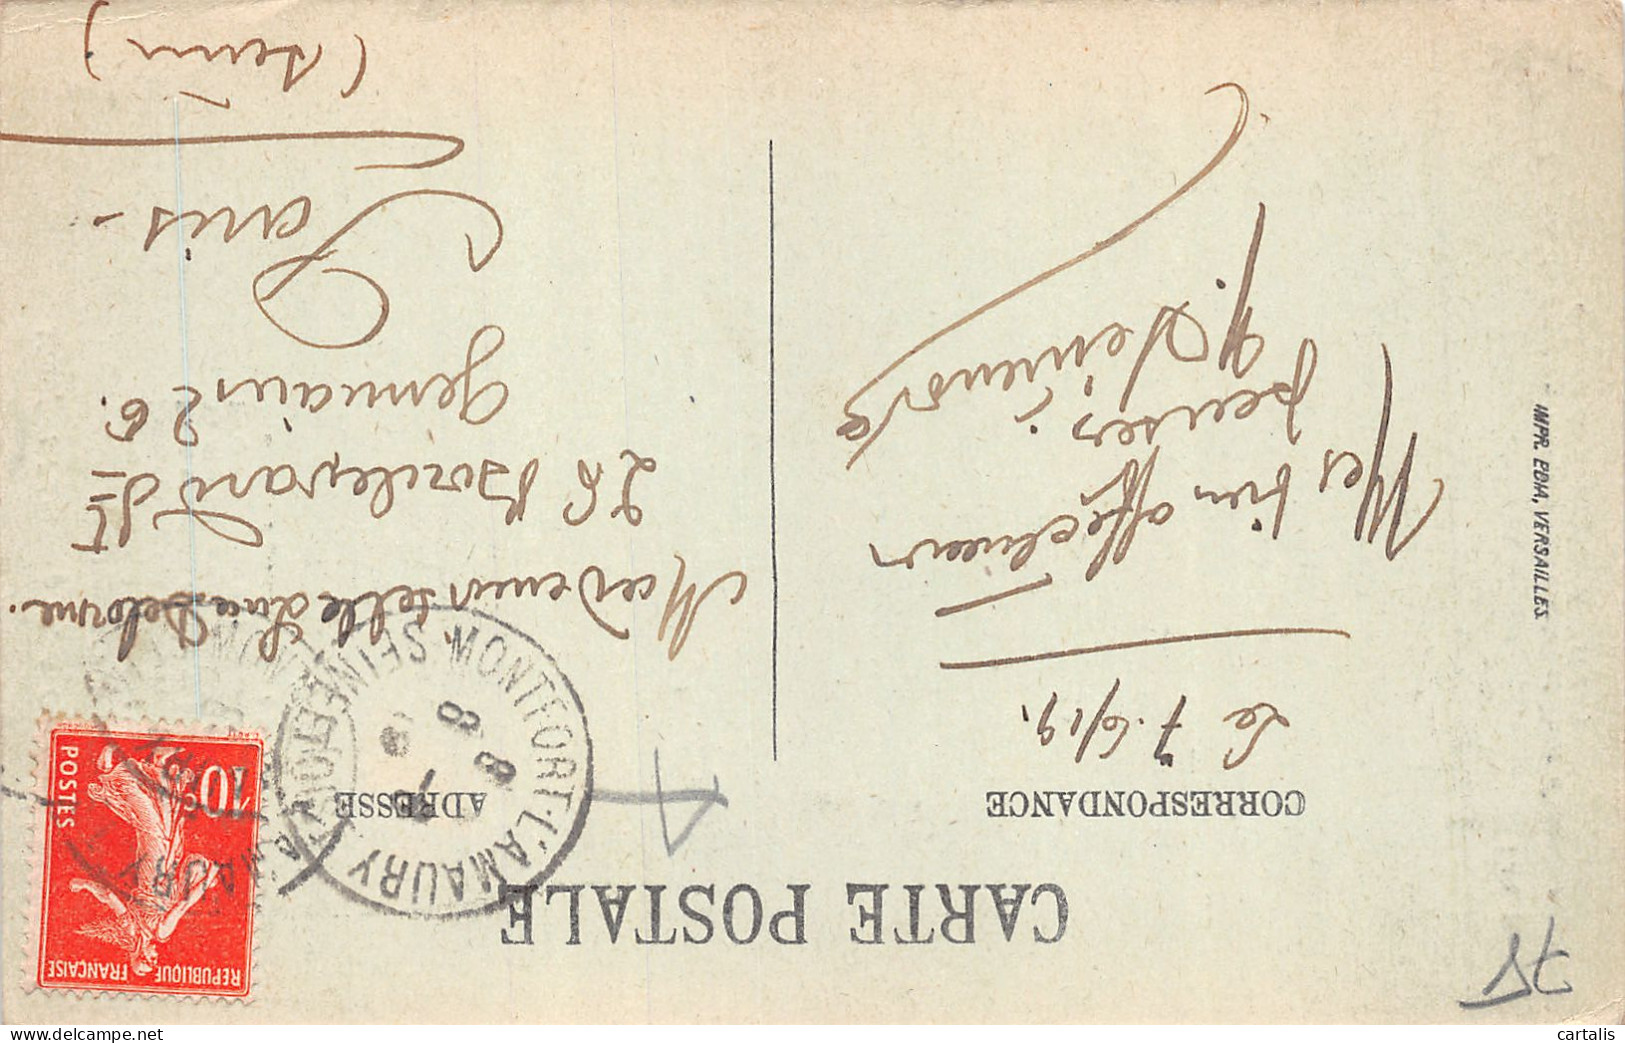 CARTE POSTALE
CORRESPONDANCE
Le 7.6/19.
Mes bien affectueuses
pensées
ADRESSE
Mademoiselle Delorme.
26 Boulevard St
Germain 26.
Paris-
(Seine)
REPUBLIQUE FRANÇAISE
10c
POSTES
MONTFORT-L'AMAURY
SEINE-ET-OISE
8
8
MONTFORT-L'AMAURY
IMPR. EDIA, VERSAILLES.
75
cartalis